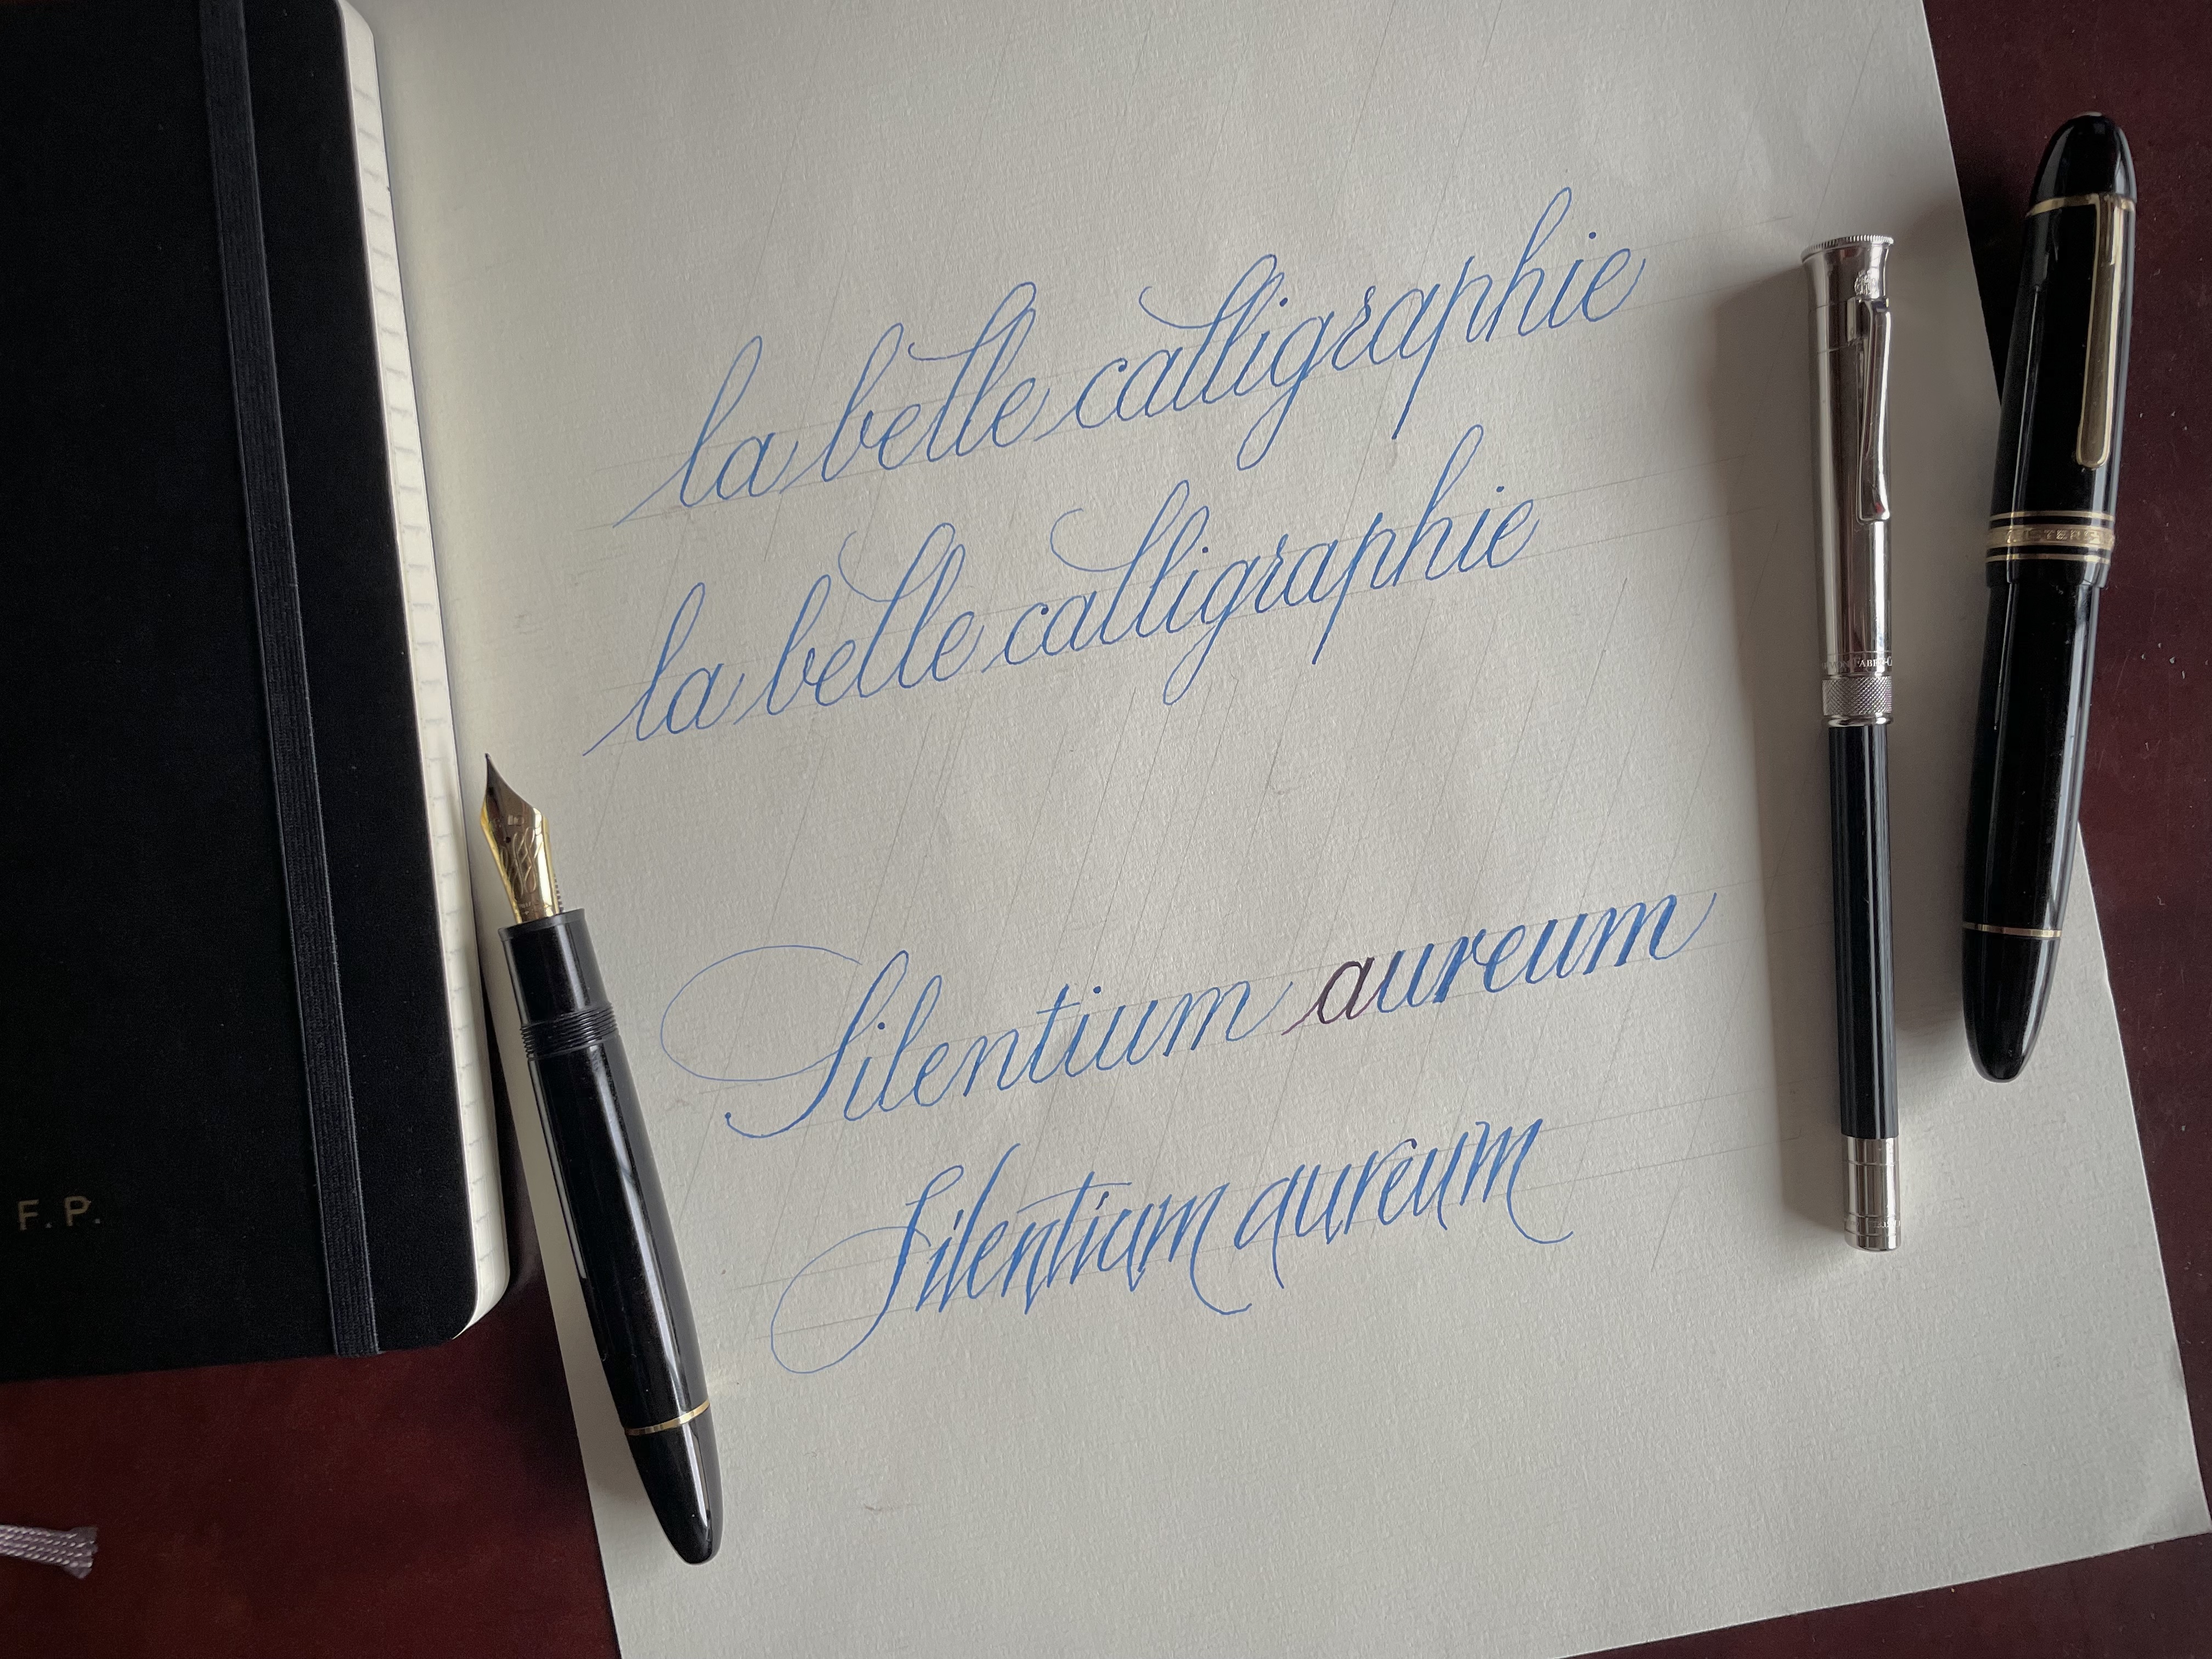 la belle calligraphie
la belle calligraphie
Silentium aureum
Silentium aureum
F. P.